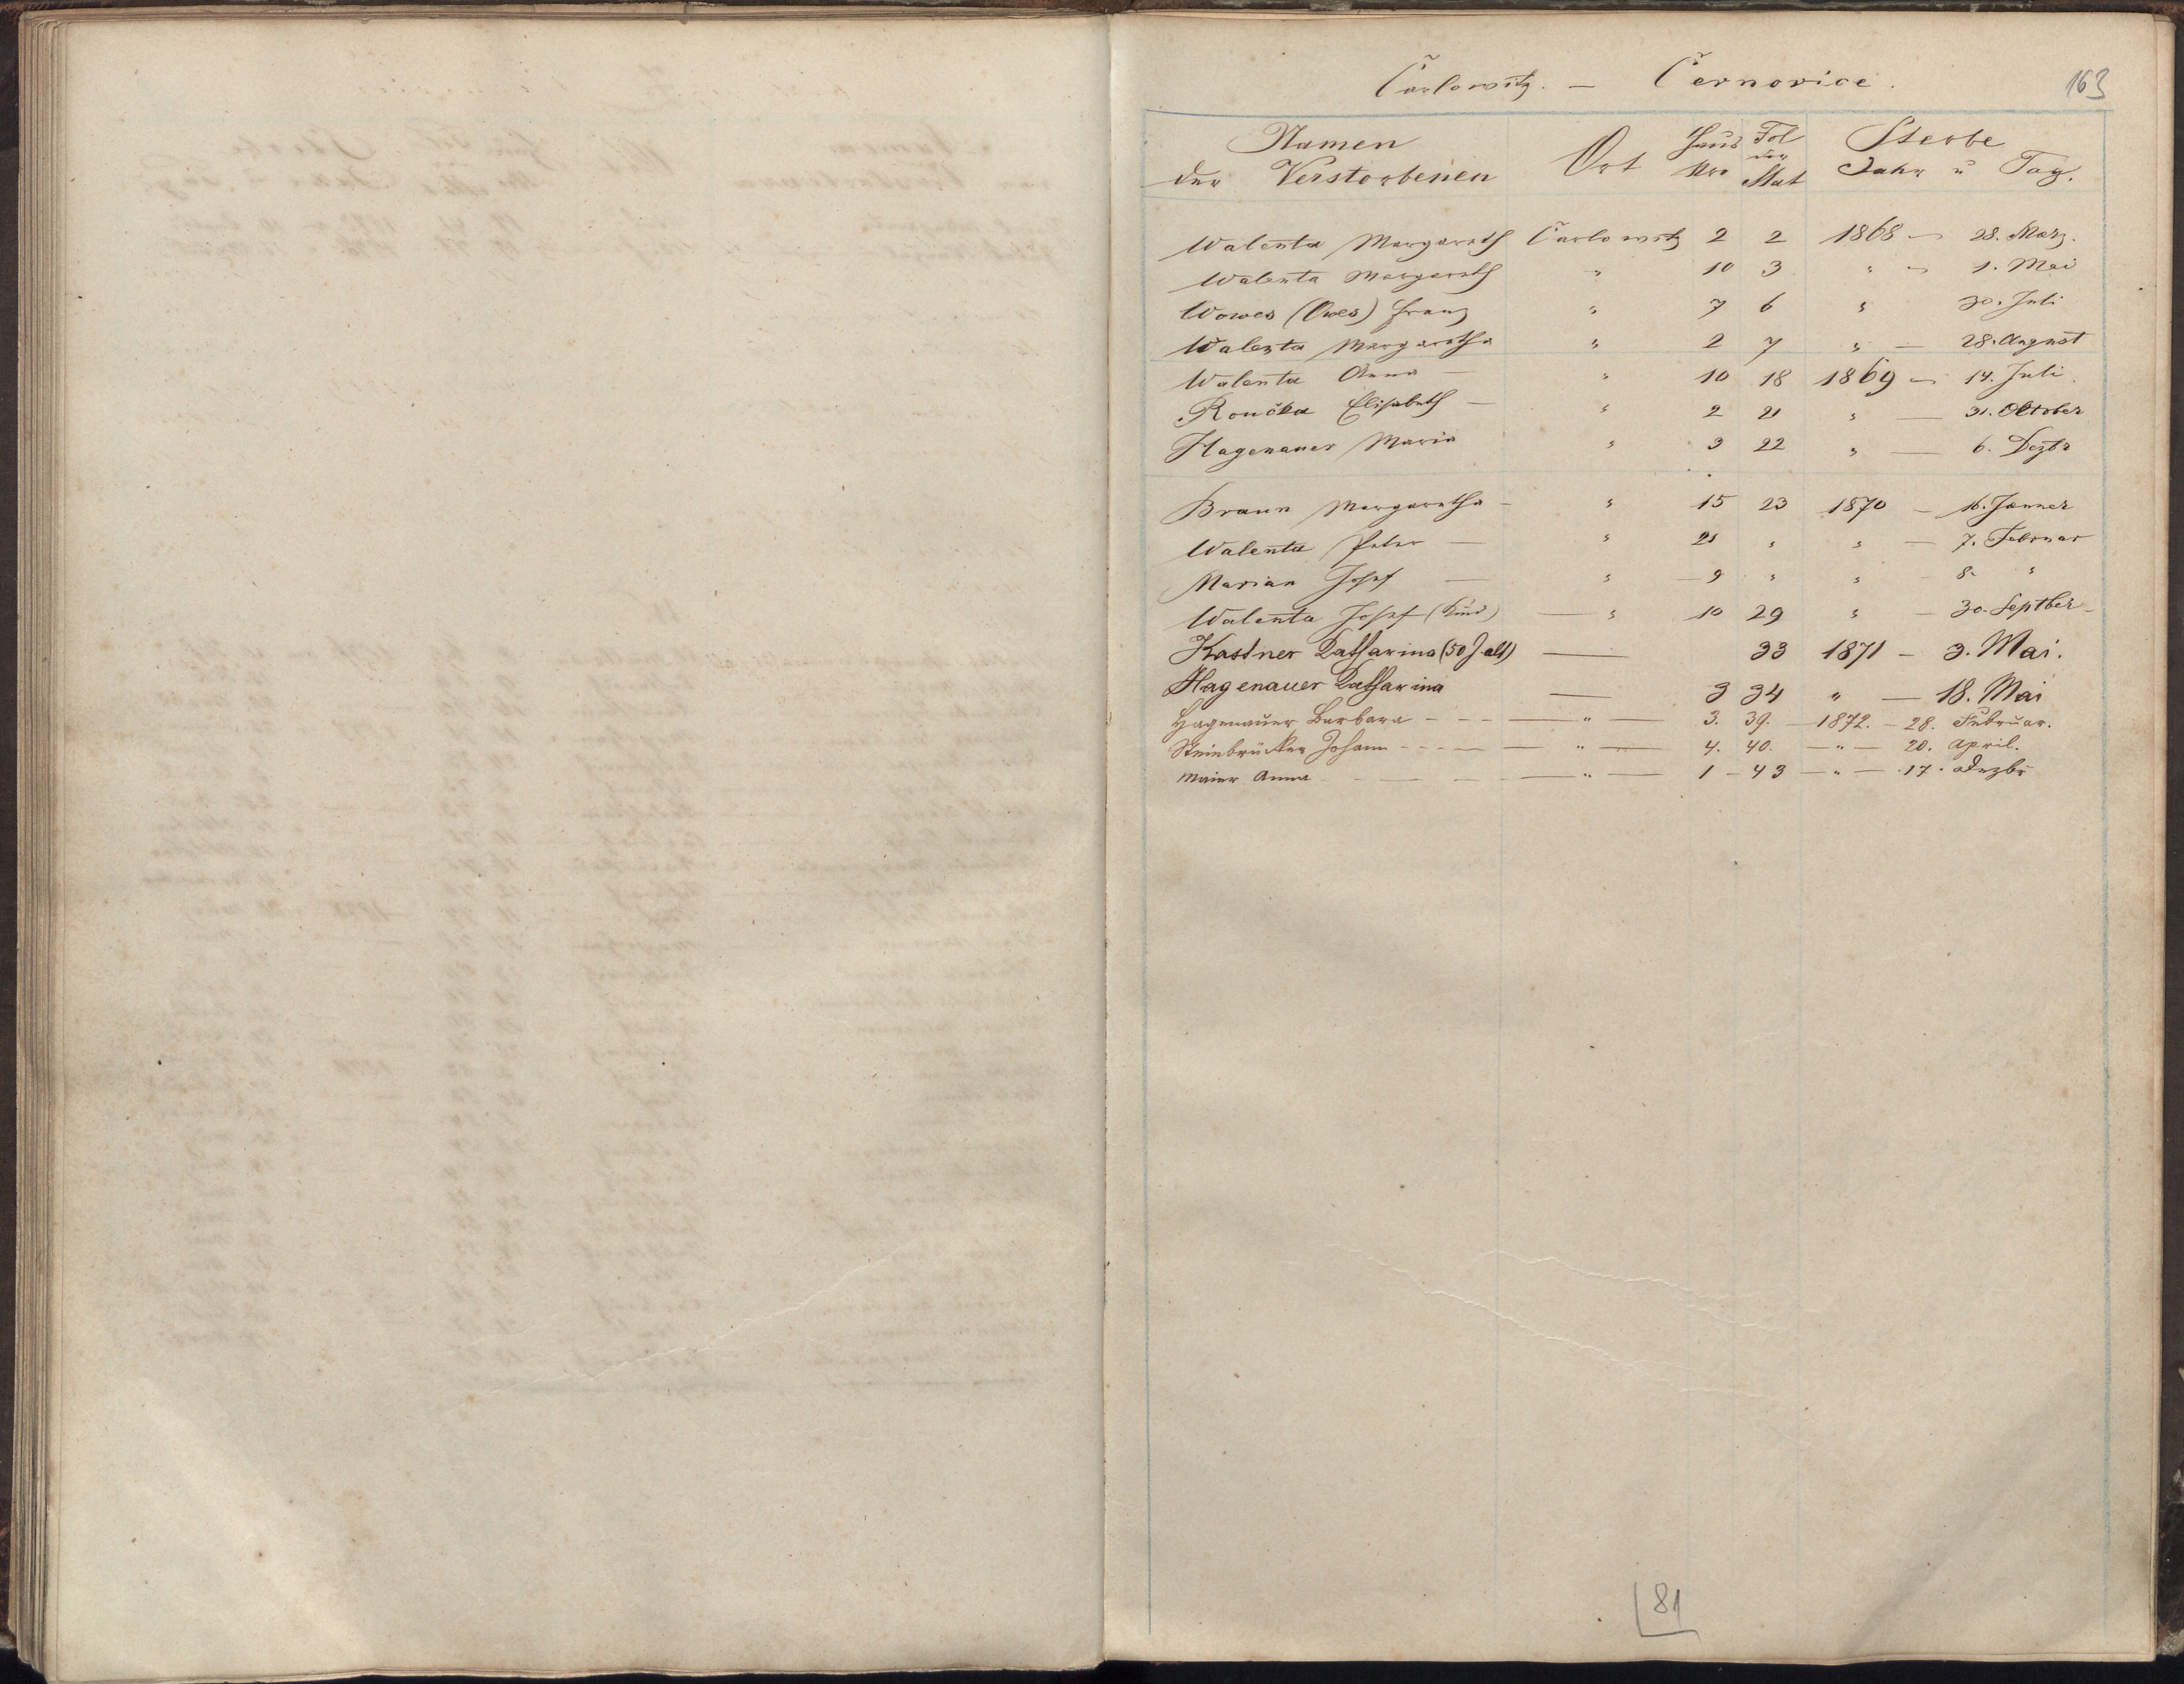 Čarlowitz. — Černovice.
163
Namen der Verstorbenen Ort Haus Nro Fol der Mat Sterbe Jahr u Tag.
Walenta Margareth Čarlowitz 2 2 1868 — 28. März.
Walenta Margareth " 10 3 " — 1. Mai
Wowes (Owes) Franz " 7 6 " 30. Juli
Walenta Margaretha " 2 7 " — 28. August
Walenta Anna — " 10 18 1869 — 14. Juli.
Roučka Elisabeth — " 2 21 " — 31. Oktober
Hagenauer Maria " 3 22 " — 6. Dezbr
Braun Margaretha — " 15 23 1870 — 16. Jänner
Walenta Peter — " 21 " " — 7. Februar
Marian Josef — " — 9 " " — 8. "
Walenta Josef (Kind) — " 10 29 " — 30. Septber —
Kastner Katharina (50 J alt) — 33 1871 — 3. Mai.
Hagenauer Katharina — 3 34 " — 18. Mai
Hagenauer Barbara - - - — " — 3. 39. — 1872. — 28. Februar.
Steinbrücker Johann - - - — " — 4. 40. — " — 20. April.
Maier Anna — — — " — 1 — 43 — " — 17. Dezbr
81